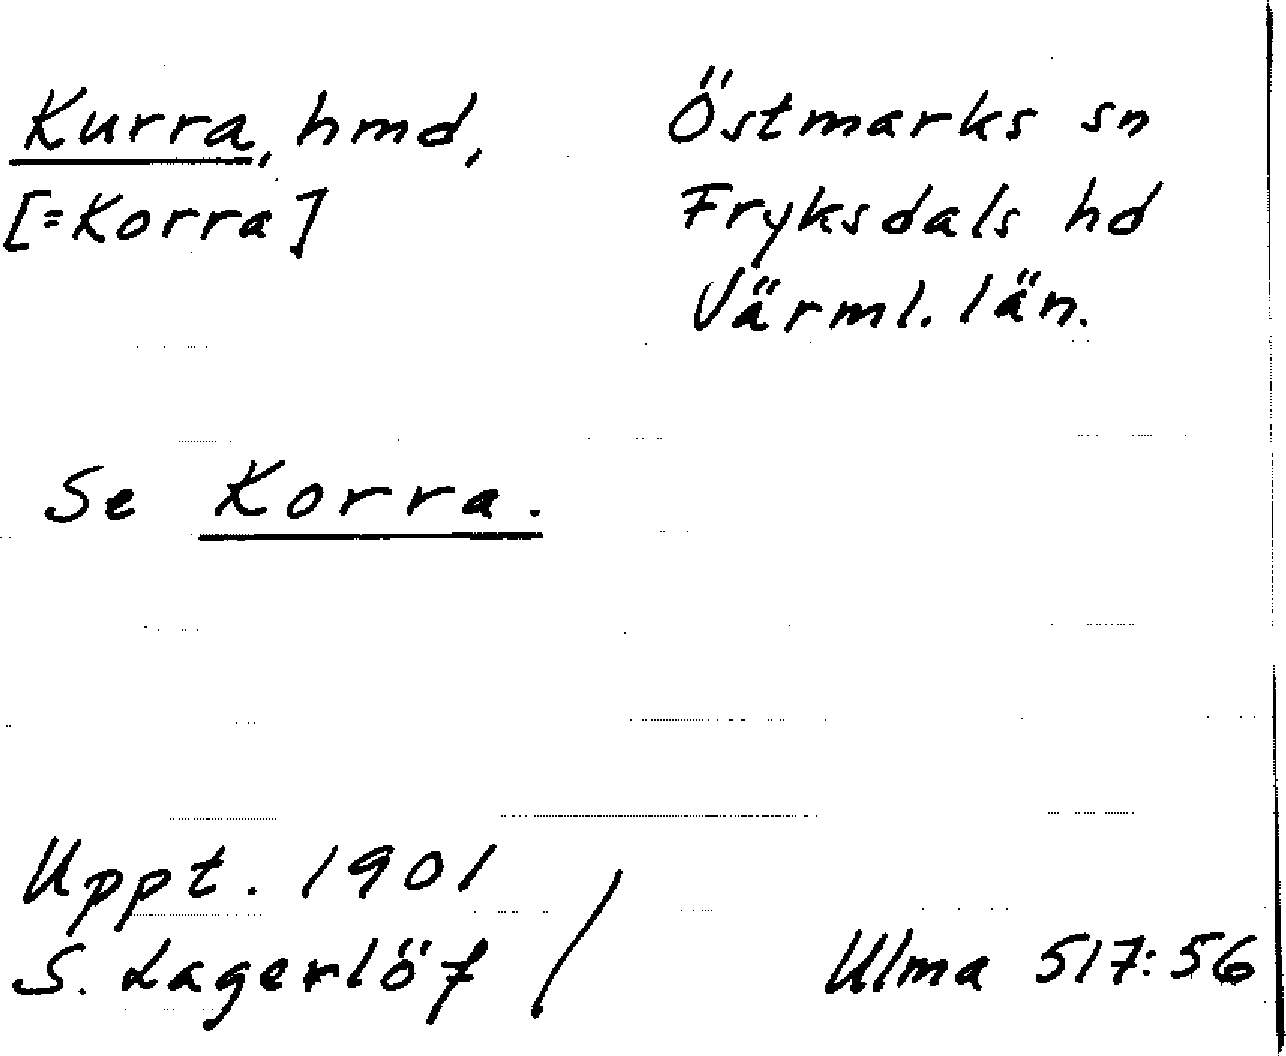 Kurra, hmd,
[=Korra]
Östmarks sn
Fryksdals hd
Värml. län.
Se Korra.
Uppt. 1901
S. Lagerlöf /
Ulma 517:56